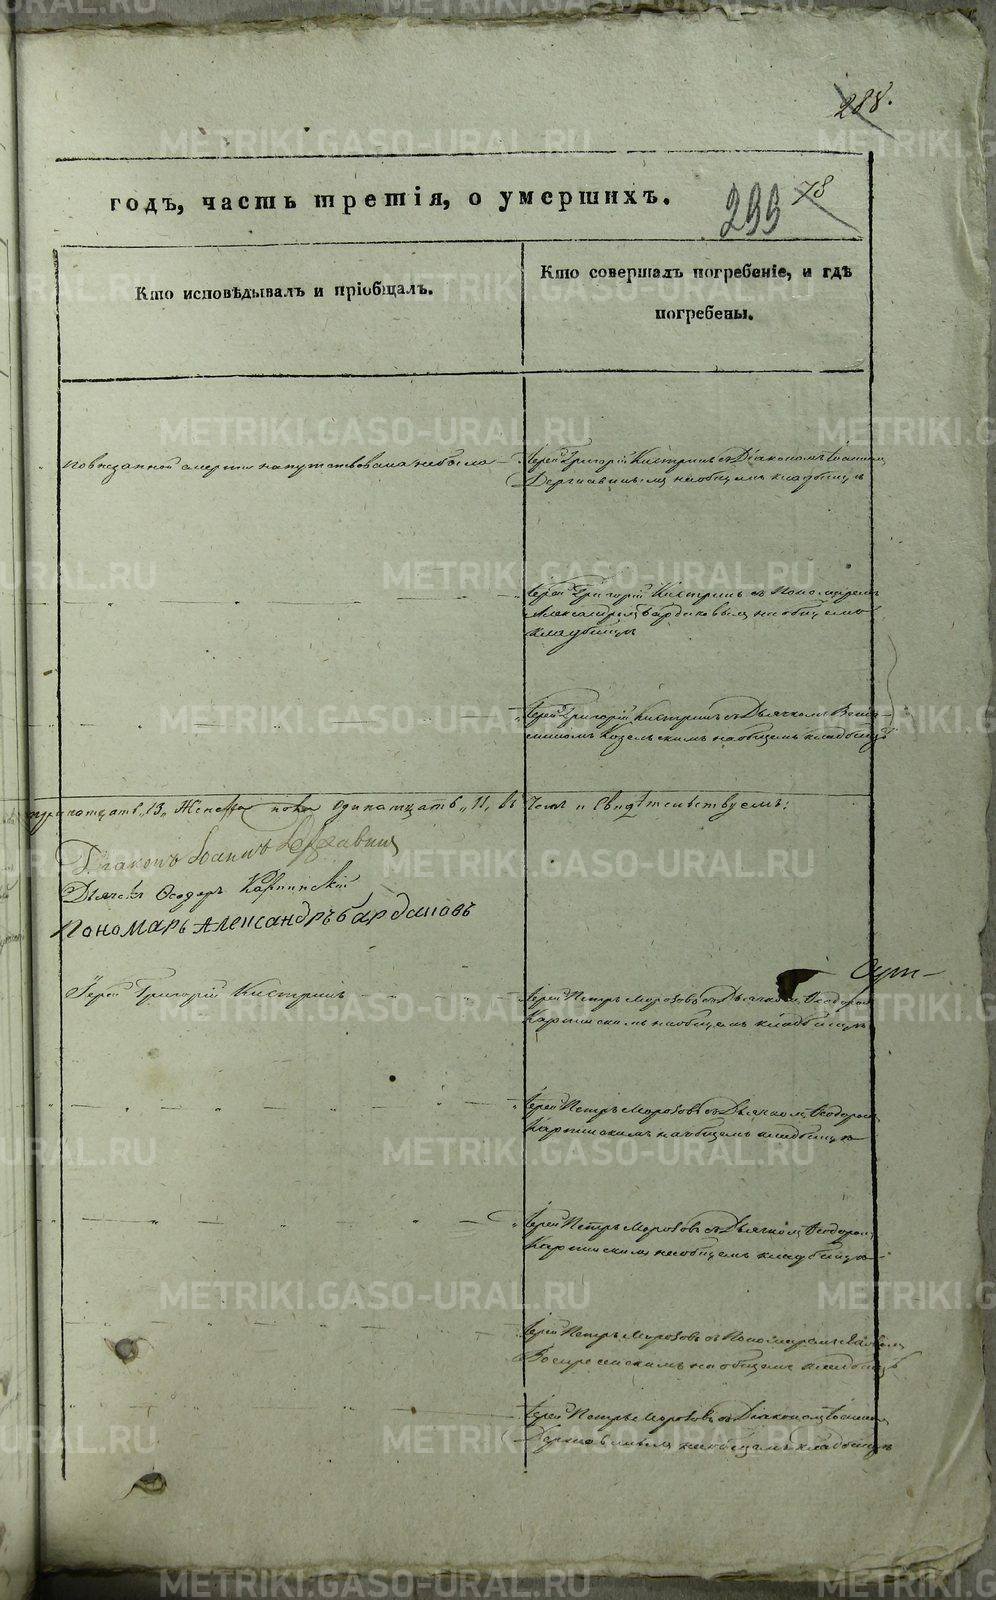 288.
годъ, часть третія, о умершихъ.
299 78
Кто исповѣдывалъ и пріобщалъ.
Кто совершалъ погребеніе, и гдѣ
погребены.
по внезапной смерти напутствована не была
Іерей Григорій Кистринъ съ Діакономъ Іоанномъ
Державинымъ на общемъ кладбищѣ
Іерей Григорій Кистринъ съ Пономаремъ
Александромъ на общемъ
кладбищѣ
Іерей Григорій Кистринъ съ Дьячкомъ Веніа-
миномъ Козельскимъ на общемъ кладбищѣ
тринатцать "13" Женска пола одинатцать "11", въ чемъ и свидѣтельствуемъ:
Діаконъ Іоаннъ Державинъ
Дьячекъ Ѳеодоръ Карпинскій
Пономарь Александръ Бардаковъ
Іерей Григорій Кистринъ
Іерей Петръ Морозовъ съ Дьячкомъ Ѳеодоромъ
Карпинскимъ на общемъ кладбищѣ
Іерей Петръ Морозовъ съ Дьячкомъ Ѳеодоромъ
Карпинскимъ на общемъ кладбищѣ
Іерей Петръ Морозовъ съ Дьячкомъ Ѳеодоромъ
Карпинскимъ на общемъ кладбищѣ
Іерей Петръ Морозовъ съ Пономаремъ
Воскресенскимъ на общемъ кладбищѣ
Іерей Петръ Морозовъ съ Діакономъ Іоанномъ
Державинымъ на общемъ кладбищѣ
METRIKI.GASO-URAL.RU